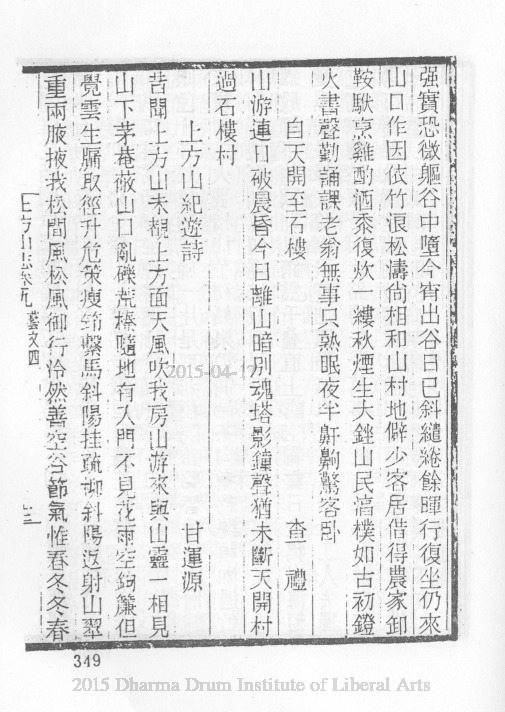 强實恐微軀谷中墮今宵出谷日已斜繾綣餘暉行復坐仍來
山口作因依竹浪松濤尙相和山村地僻少客居借得農家卸
鞍馱烹雞酌酒黍復炊一縷秋煙生大銼山民滀樸如古初鐙
火書聲勤誦課老翁無事只熟眠夜半鼾齁驚客臥
自天開至石樓
查禮
山游連日破晨昏今日離山暗別魂塔影鐘聲猶未斷天開村
過石樓村
上方山紀遊詩
甘運源
昔聞上方山未覩上方面天風吹我房山游來與山靈一相見
山下茅菴蔽山口亂礫荒榛隨地有入門不見花雨空鉤簾但
覺雲生牖取徑升危策瘦筇繫馬斜陽挂疏柳斜陽返射山翠
重兩腋掖我松間風松風御行泠然善空谷節氣惟春冬冬春
上方山志卷九
藝文四
三
349
2015-04-17
2015 Dharma Drum Institute of Liberal Arts